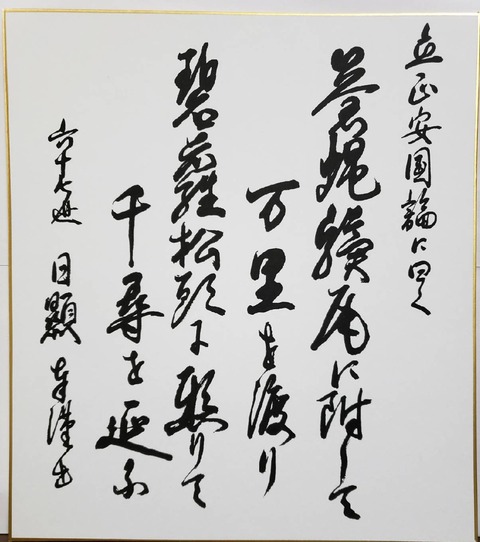 立正安国論に曰く
蒼蝿驥尾に附して
万里を渡り
碧蘿松頭に懸りて
千尋を延ふ
六十七世 日顯 謹書